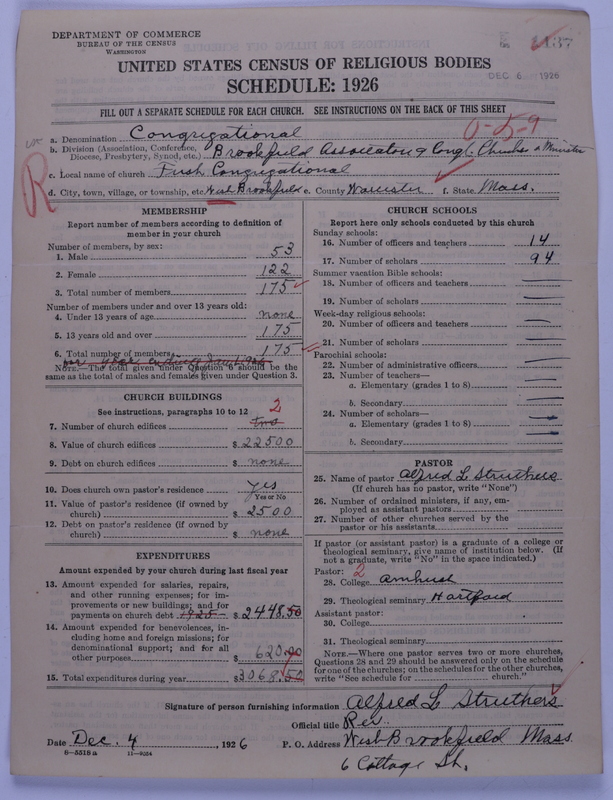 DEPARTMENT OF COMMERCE
BUREAU OF THE CENSUS
WASHINGTON
DEC 6 1926
UNITED STATES CENSUS OF RELIGIOUS BODIES
SCHEDULE: 1926
FILL OUT A SEPARATE SCHEDULE FOR EACH CHURCH. SEE INSTRUCTIONS ON THE BACK OF THIS SHEET
0-5-9
R
a. Denomination Congregational
b. Division (Association, Conference, Diocese, Presbytery, Synod, etc.) Brookfield Association of Congl. Churches & Ministers
c. Local name of church First Congregational
d. City, town, village, or township, etc. West Brookfield e. County Worcester f. State Mass.
MEMBERSHIP
Report number of members according to definition of
member in your church
Number of members, by sex:
1. Male 53
2. Female 122
3. Total number of members 175
Number of members under and over 13 years old:
4. Under 13 years of age none
5. 13 years old and over 175
6. Total number of members 175
NOTE.—The total given under Question 6 should be the
same as the total of males and females given under Question 3.
CHURCH BUILDINGS
See instructions, paragraphs 10 to 12
2
7. Number of church edifices two
8. Value of church edifices $ 22500
9. Debt on church edifices $ none
10. Does church own pastor's residence yes
Yes or No
11. Value of pastor's residence (if owned by
church) $ 2500
12. Debt on pastor's residence (if owned by
church) $ none
EXPENDITURES
Amount expended by your church during last fiscal year
13. Amount expended for salaries, repairs,
and other running expenses; for im-
provements or new buildings; and for
payments on church debt 1925 $ 2448.50
14. Amount expended for benevolences, in-
cluding home and foreign missions; for
denominational support; and for all
other purposes $ 620.00
15. Total expenditures during year $ 3068.50
CHURCH SCHOOLS
Report here only schools conducted by this church
Sunday schools:
16. Number of officers and teachers 14
17. Number of scholars 94
Summer vacation Bible schools:
18. Number of officers and teachers
19. Number of scholars
Week-day religious schools:
20. Number of officers and teachers
21. Number of scholars
Parochial schools:
22. Number of administrative officers
23. Number of teachers—
a. Elementary (grades 1 to 8)
b. Secondary
24. Number of scholars—
a. Elementary (grades 1 to 8)
b. Secondary
PASTOR
25. Name of pastor Alfred L. Struthers
(If church has no pastor, write "None")
26. Number of ordained ministers, if any, em-
ployed as assistant pastors
27. Number of other churches served by the
pastor or his assistants
If pastor (or assistant pastor) is a graduate of a college or
theological seminary, give name of institution below. (If
not a graduate, write "No" in the space indicated.)
Pastor: 2
28. College Amherst
29. Theological seminary Hartford
Assistant pastor:
30. College
31. Theological seminary
NOTE.—Where one pastor serves two or more churches,
Questions 28 and 29 should be answered only on the schedule
for one of the churches; on the schedules for the other churches,
write "See schedule for church."
Signature of person furnishing information Alfred L. Struthers
Official title Rev.
Date Dec. 4, 1926 P. O. Address West Brookfield Mass.
8-5518 a 11-9554
6 Cottage St.